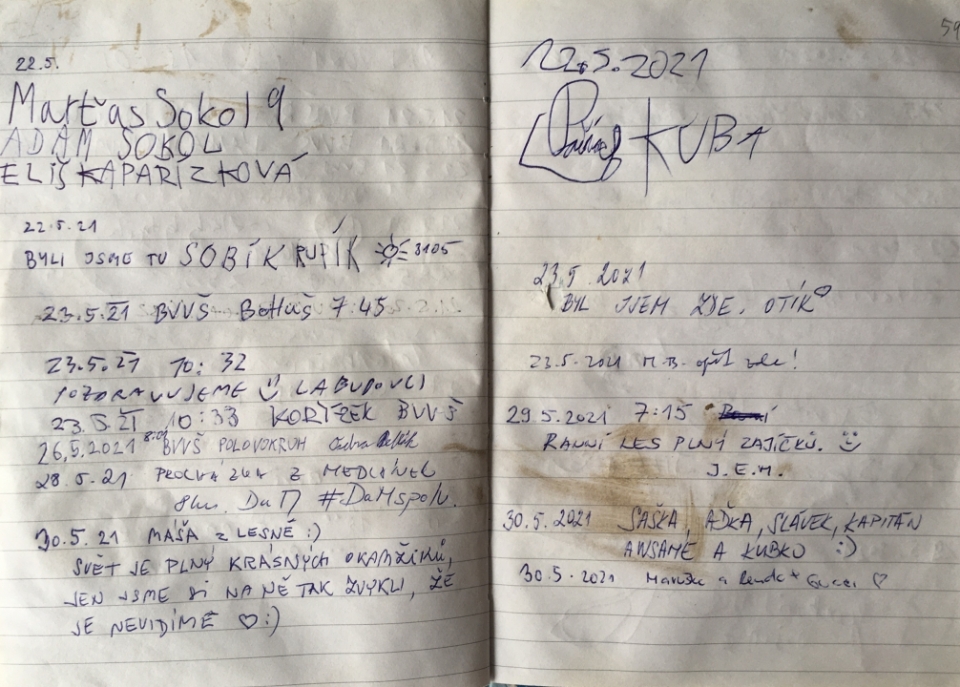 22.5.
Mart'as Sokol 9
ADAM SOKOL
ELIŠKA PARIZKOVÁ
22.5.21
BYLI JSME TU SOBÍK RUPÍK 3105
23.5.21 BVVŠ BOHUŠ 7:45
23.5.21 10:32
POZDRAVUJEME LABUDOVCI
23.5.21 10:33 KORÍZEK BVVŠ
26.5.2021 8:01 BVVŠ POLOVOKRUH
28.5.21 PROCHÁZKA Z MEDLÁNEK
8km, DaM #DaMspolu.
30.5.21 MÁŠA Z LESNÉ :)
SVĚT JE PLNÝ KRÁSNÝCH OKAMŽIKŮ,
JEN JSME SI NA NĚ TAK ZVYKLI, ŽE
JE NEVIDÍME ♡:)
59
22.5.2021
KUBA
23.5.2021
BYL JSEM ZDE, OTÍK
23.5.2021 M.B. opět zde!
29.5.2021 7:15
RANNÍ LES PLNÝ ZAJÍČKŮ.
J.E.M.
30.5.2021 SAŠKA, AĎKA, SLÁVEK, KAPITÁN
AWSAME A KUBKO :)
30.5.2021 a + ♡